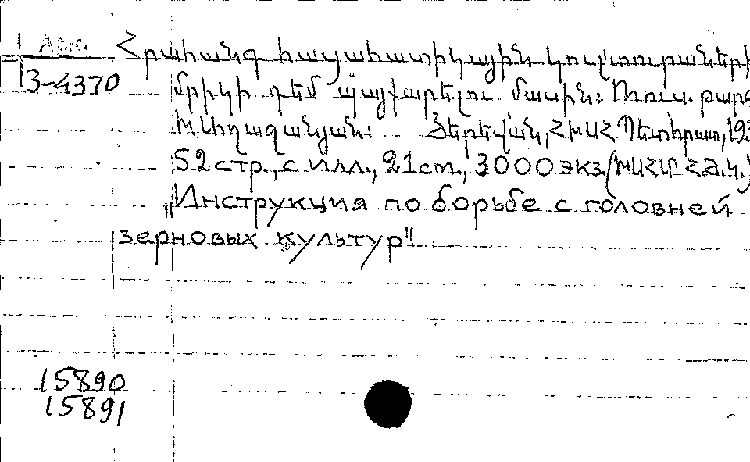 Հրահանգ հացահատիկային կուլտուրաների
3-4370
մրիկի դեմ պայքարելու մասին: Ռուս. թարգ
Երևան, ՀԽՍՀ Պետհրատ, 193
52 стр., с илл., 21 ст., 3000 экз.
„Инструкция по борьбе с головней
зерновых культур"
15890
15891